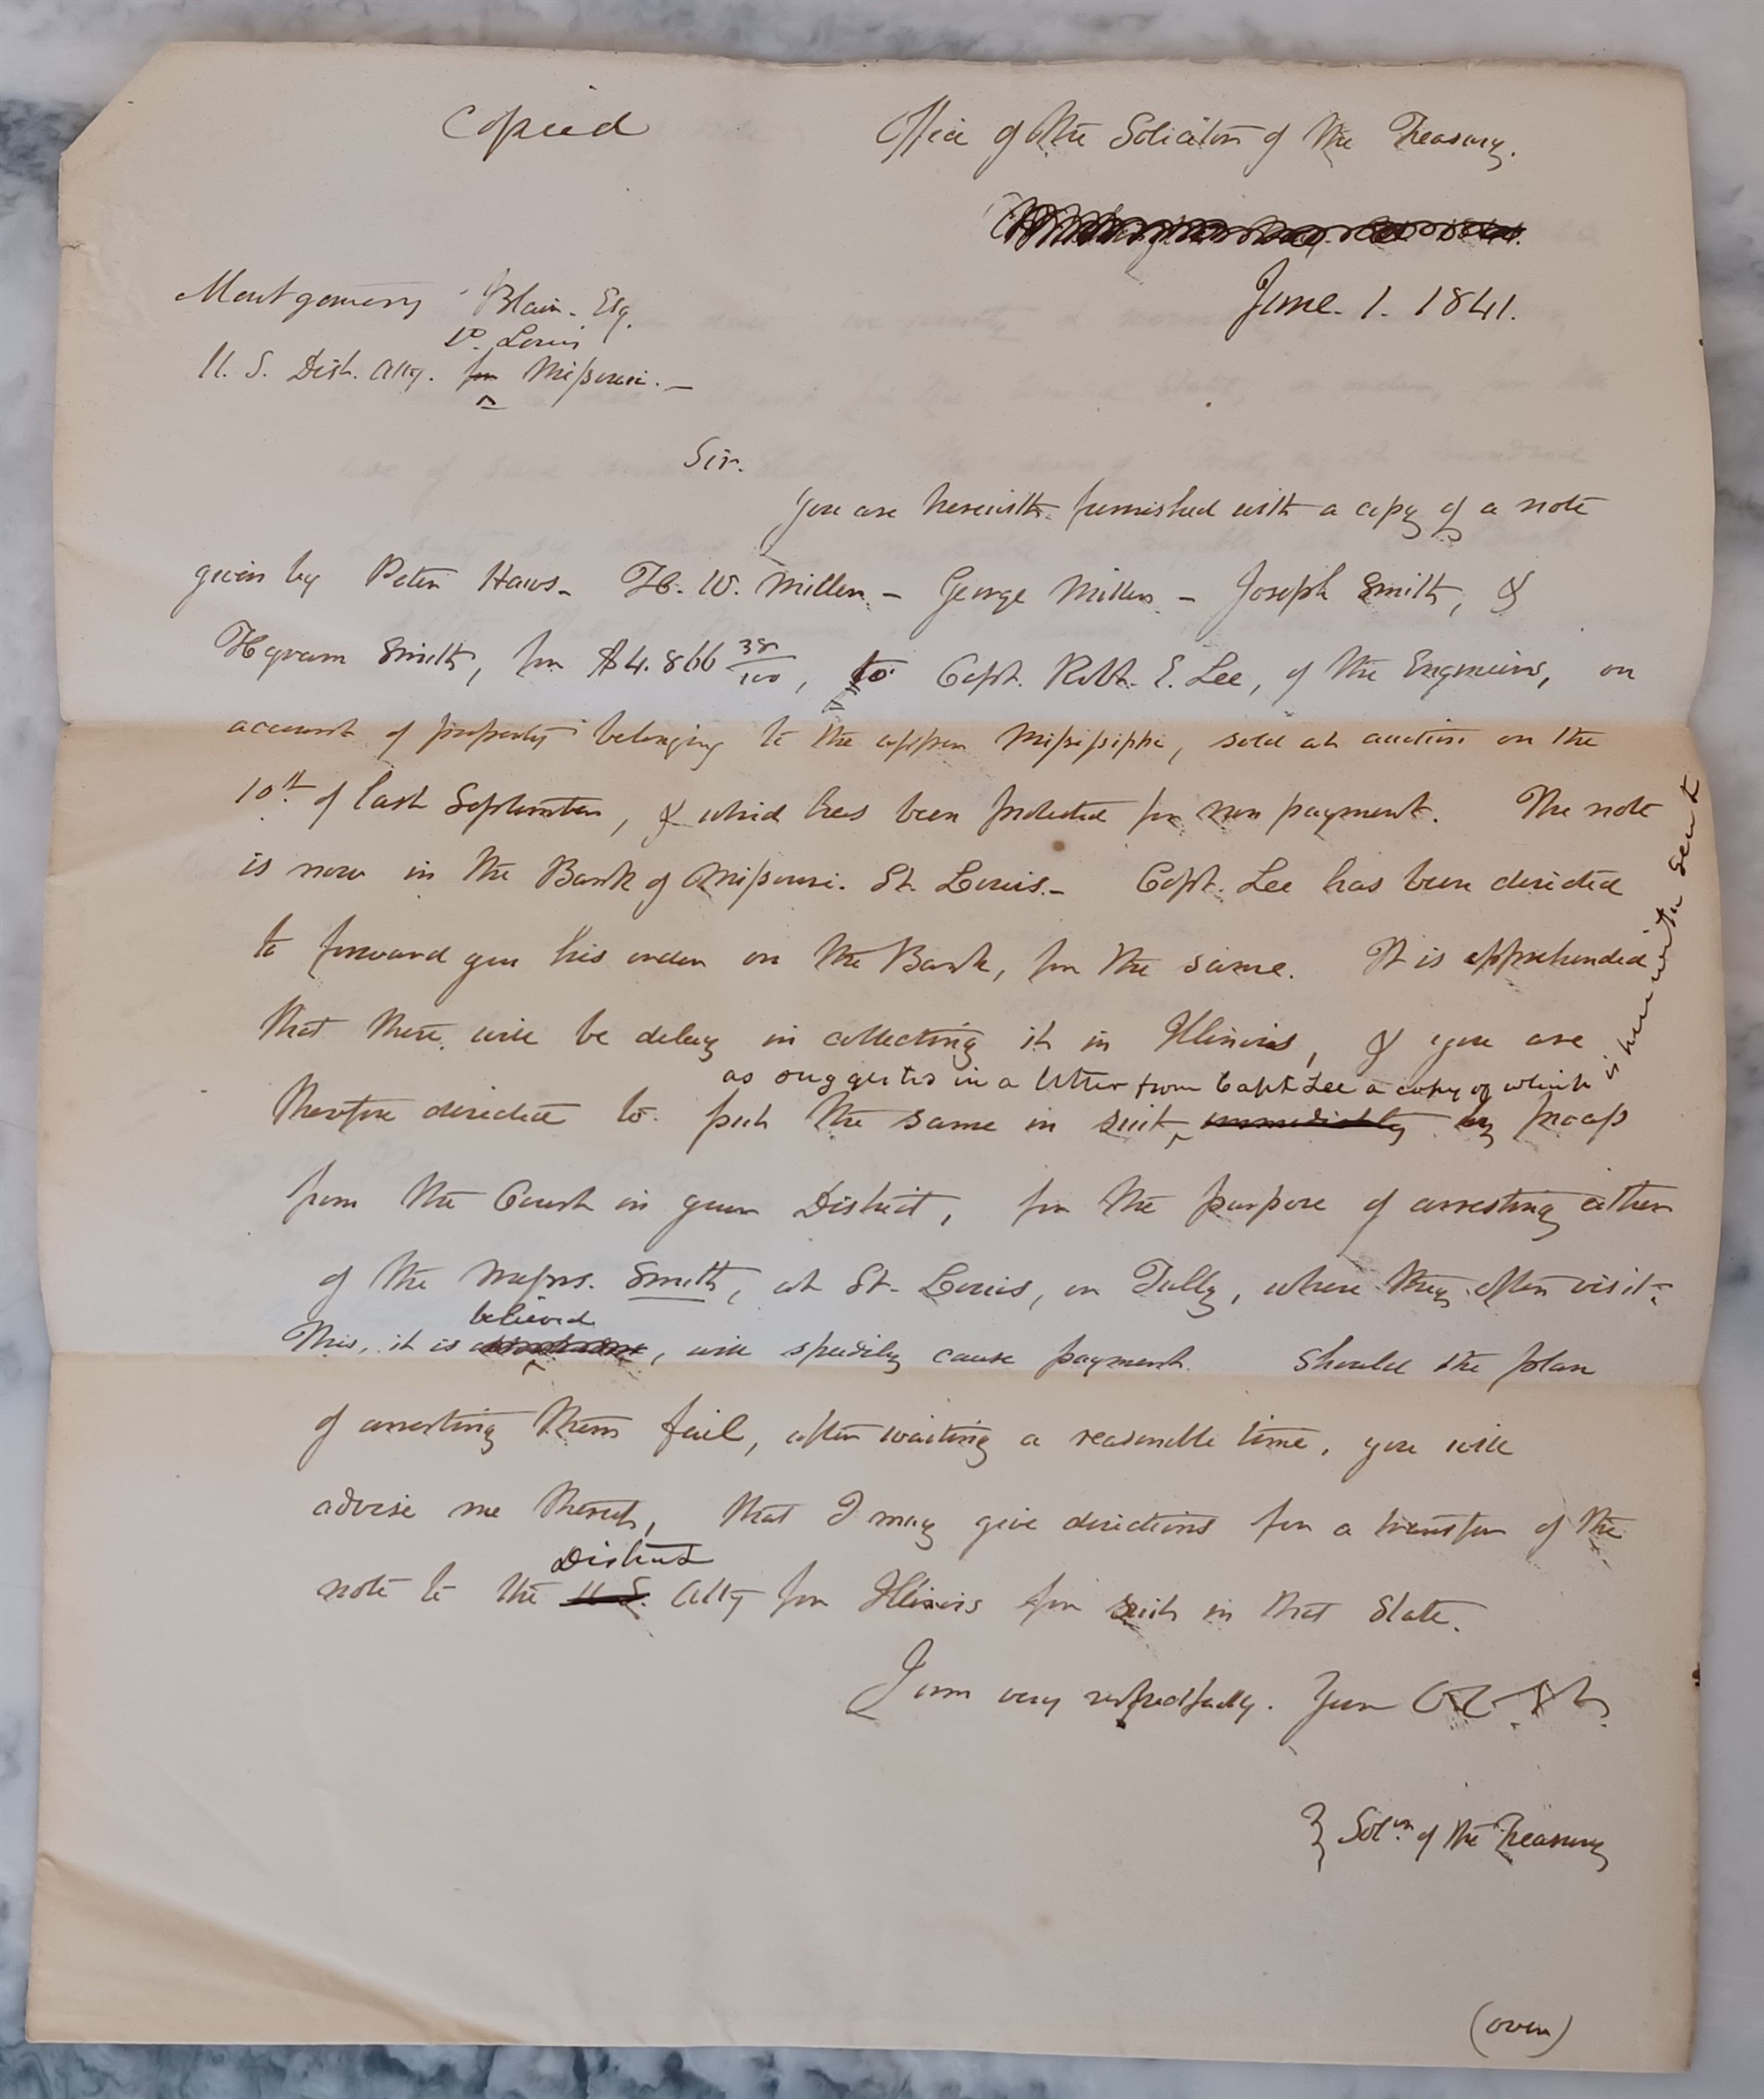 Copied
Office of the Solicitor of the Treasury.
June. 1. 1841.
Montgomery Blair. Esq.
St. Louis
U. S. Dist. Atty. for Missouri.
Sir.
You are herewith furnished with a copy of a note
given by Peter Haws - H. W. Miller - George Miller - Joseph Smith, &
Hyram Smith, for $4.866 38/100, to Capt. Robt. E. Lee, of the Engineers, on
account of property belonging to the upper Mississippi, sold at auction on the
10th. of last September, & which has been protested for non payment. The note
is now in the Bank of Missouri. St. Louis. - Capt. Lee has been directed
to forward you his order on the Bank, for the same. It is apprehended
that there will be delay in collecting it in Illinois, & you are
as suggested in a letter from Capt Lee a copy of which is herewith sent
therefore directed to put the same in suit immediately by process
from the Court in your District, for the purpose of arresting either
of the Messrs. Smith, at St. Louis, or Tully, where they often visit.
believed
This, it is , will speedily cause payment. Should the plan
of arresting them fail, after waiting a reasonable time, you will
advise me thereof, that I may give directions for a transfer of the
District
note to the U.S. Atty for Illinois for suit in that State.
I am very respectfully. Your
Solr. of the Treasury
(over)